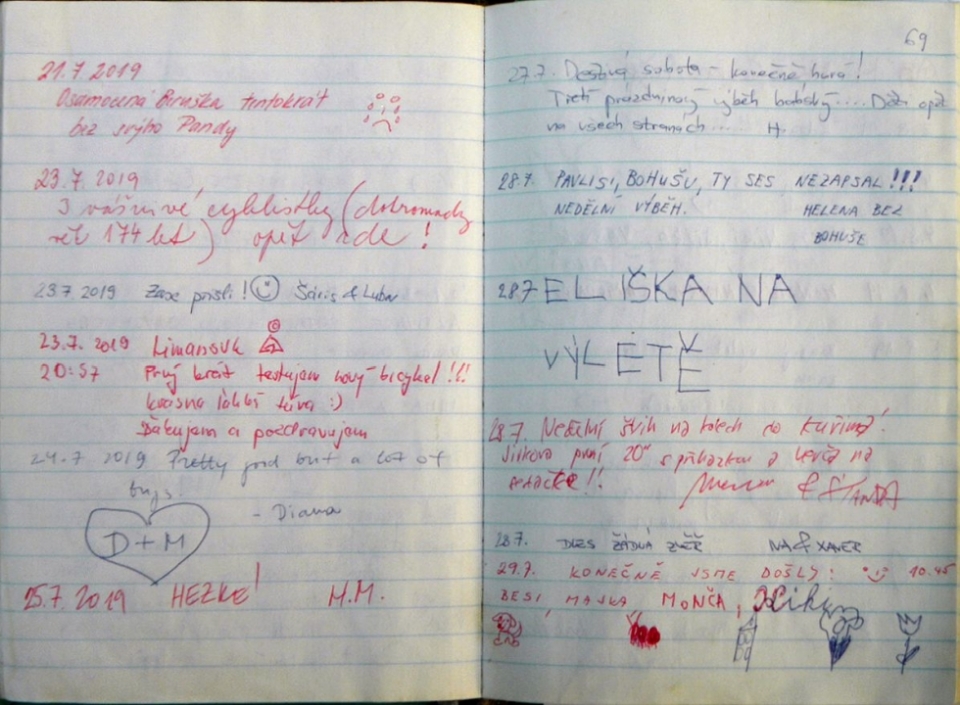 21.7 2019
Osamocená Beruška tentokrát
bez svýho Pandy
23.7.2019
3 vášnivé cyklistky (dohromady
174 let) opět zde!
23.7 2019 Zase prišli! & Lubor
23.7. 2019
20:57 Prvý krát testujem nový bicykel !!!
krásna :)
Ďakujem a pozdravujem
24.7 2019 Pretty good but a lot of
bugs.
- Diana
D+M
25.7.2019 HEZKE! M.M.
69
27.7. Deštivá sobota - konečně hurá!
Třetí prázdninový výběh Děti opět
na všech stranách... H.
28.7. PAVLISI, BOHUŠU, TY SES NEZAPSAL!!!
NEDĚLNÍ VÝBĚH. HELENA BEZ
BOHUŠE
28.7 ELIŠKA NA
VÝLETĚ
28.7. Nedělní švih na kolech do Kuřimi!
Jirkova první 20" s
!!
& STANDA
28.7. DNES ŽÁDNÁ ZVĚŘ & XAVER
29.7. KONEČNĚ JSME DOŠLY: 10.45
BESI, MAJKA, MONČA,